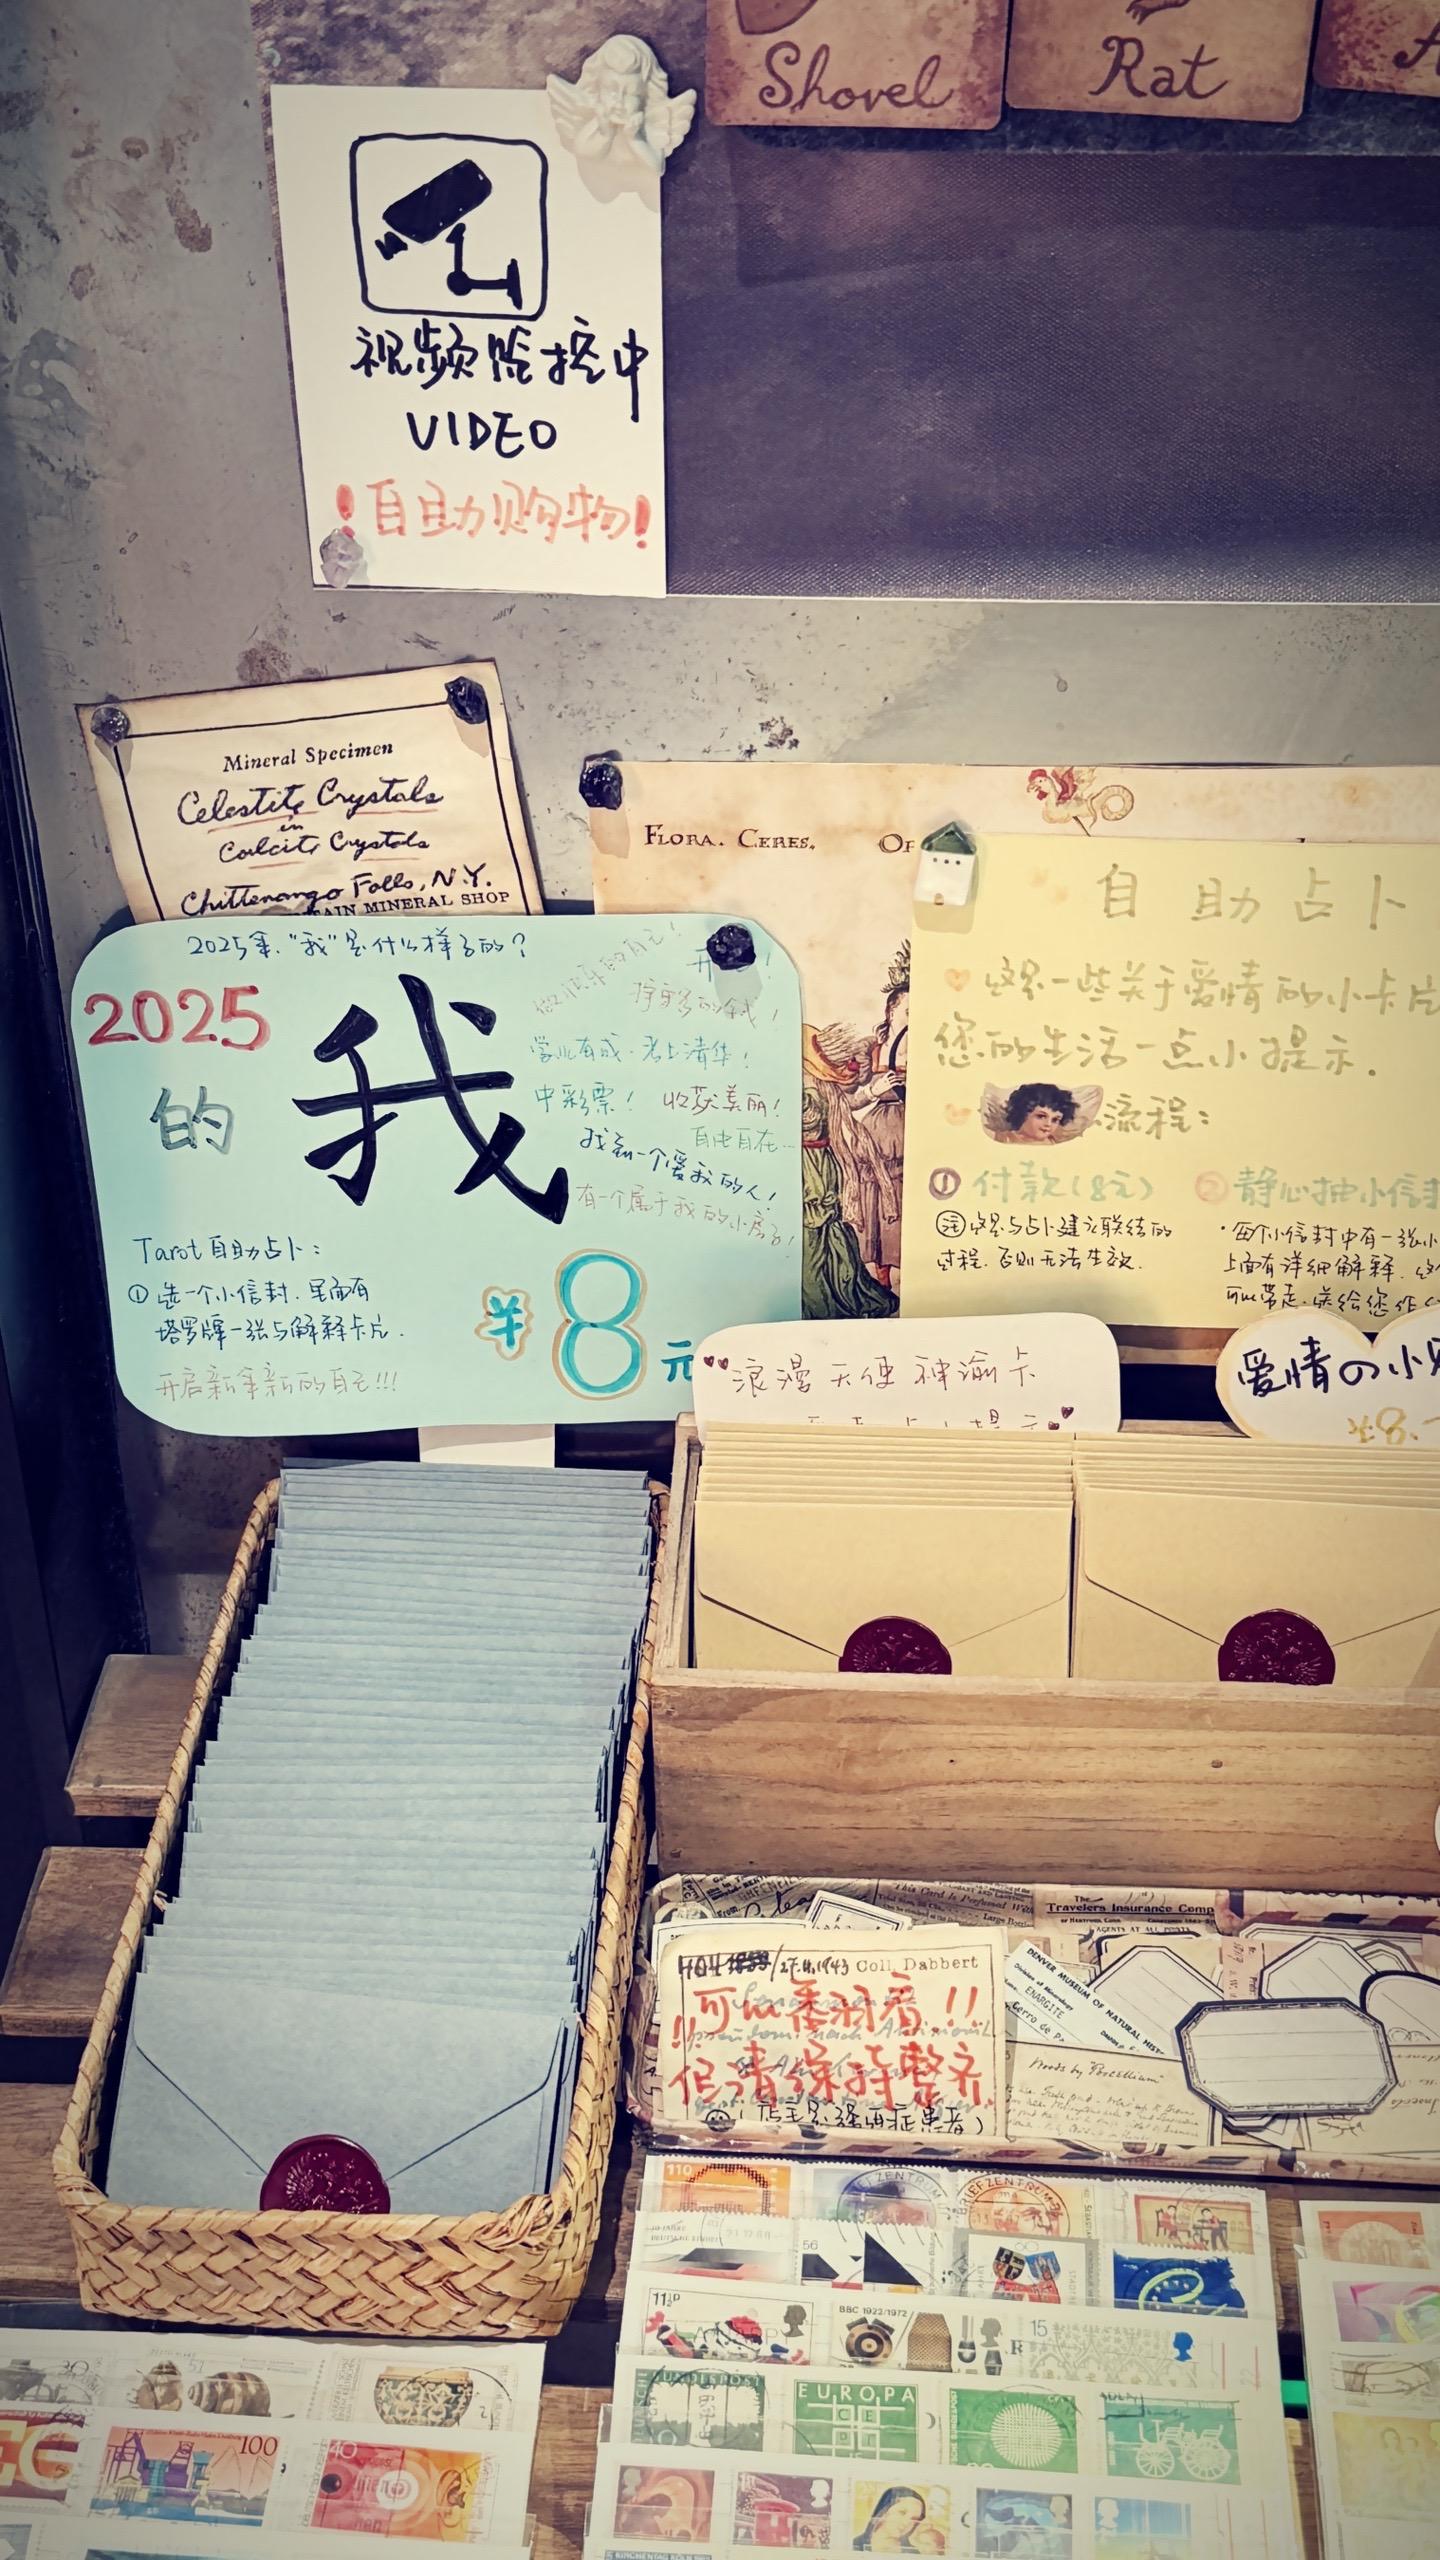 Shovel
Rat
视频监控中
VIDEO
！自助购物！
Mineral Specimen
Celestite Crystals
in
Calcite Crystals
Chittenango Falls, N.Y.
TAIN MINERAL SHOP
FLORA. CERES.
自助占卜
这是一些关于爱情的小卡片
您的生活一点小提示.
流程：
① 付款（8元）
② 静心抽小信封
注 这是与占卜建立联结的
过程. 否则无法生效.
·每个小信封中有一张小
上面有详细解释. 这
可以带走. 送给您作
2025年. "我"是什么样子的？
2025
的
我
做很乐的自己！
学业有成. 考上清华！
中彩票！ 收获美丽！
自由自在...
找到一个爱我的人！
有一个属于我的小房子！
Tarot 自助占卜：
① 选一个小信封. 里面有
塔罗牌一张与解释卡片.
开启新年新的自己!!!
¥8元
浪漫天使神谕卡
爱情の小
8
The
Travelers Insurance Comp
AGENTS AT ALL POINTS
This Card Is Perfumed With
/27.11.1943 Coll. Dabbert
!!可以乱翻看!!
但请保持整齐
（店主是强迫症患者）
DENVER MUSEUM OF NATURAL HIST
ENARGITE
Cerro de P
110
56
BRIEFZENTRUM
11½p
BBC 1922/1972
15
EUROPA
CE
100
40